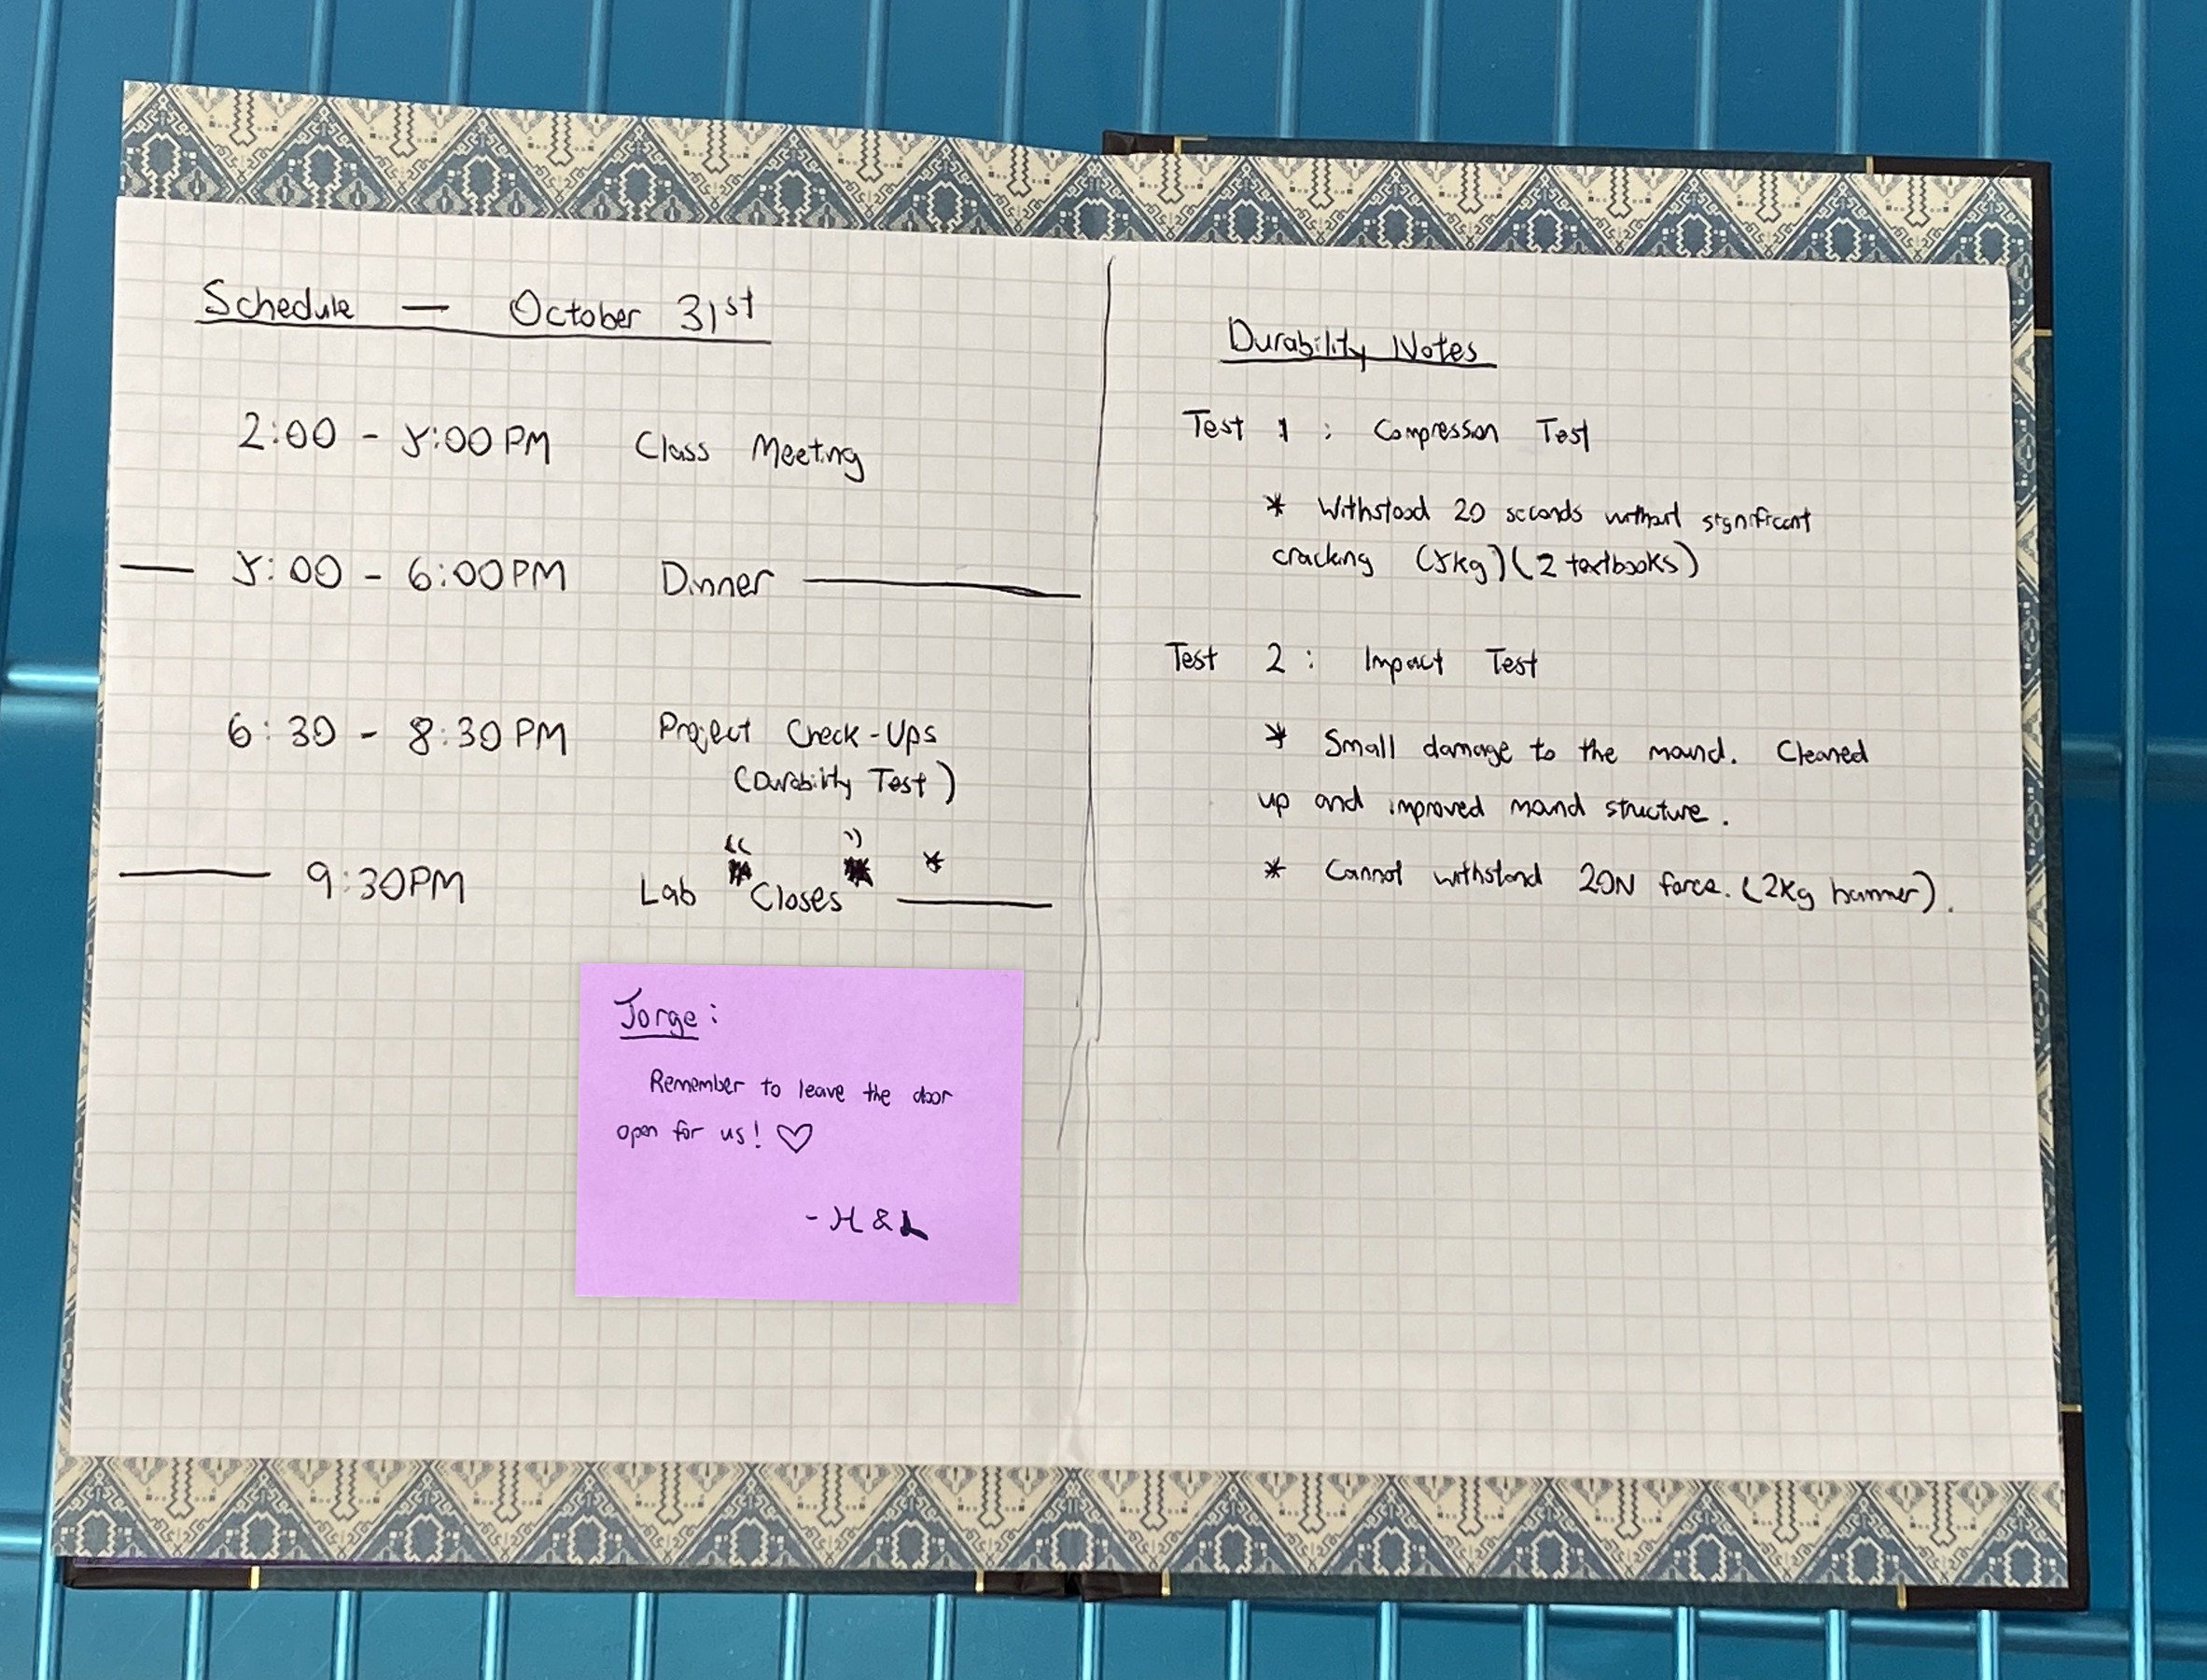 Schedule — October 31st
2:00 - 5:00 PM Class Meeting
5:00 - 6:00 PM Dinner
6:30 - 8:30 PM Project Check-Ups
(Durability Test)
9:30 PM Lab "Closes" *
Jorge:
Remember to leave the door
open for us! ♡
- H & L
Durability Notes
Test 1 : Compression Test
* Withstood 20 seconds without significant
cracking (5kg) (2 textbooks)
Test 2 : Impact Test
* Small damage to the mound. Cleaned
up and improved mound structure.
* Cannot withstand 20N force. (2kg hammer).